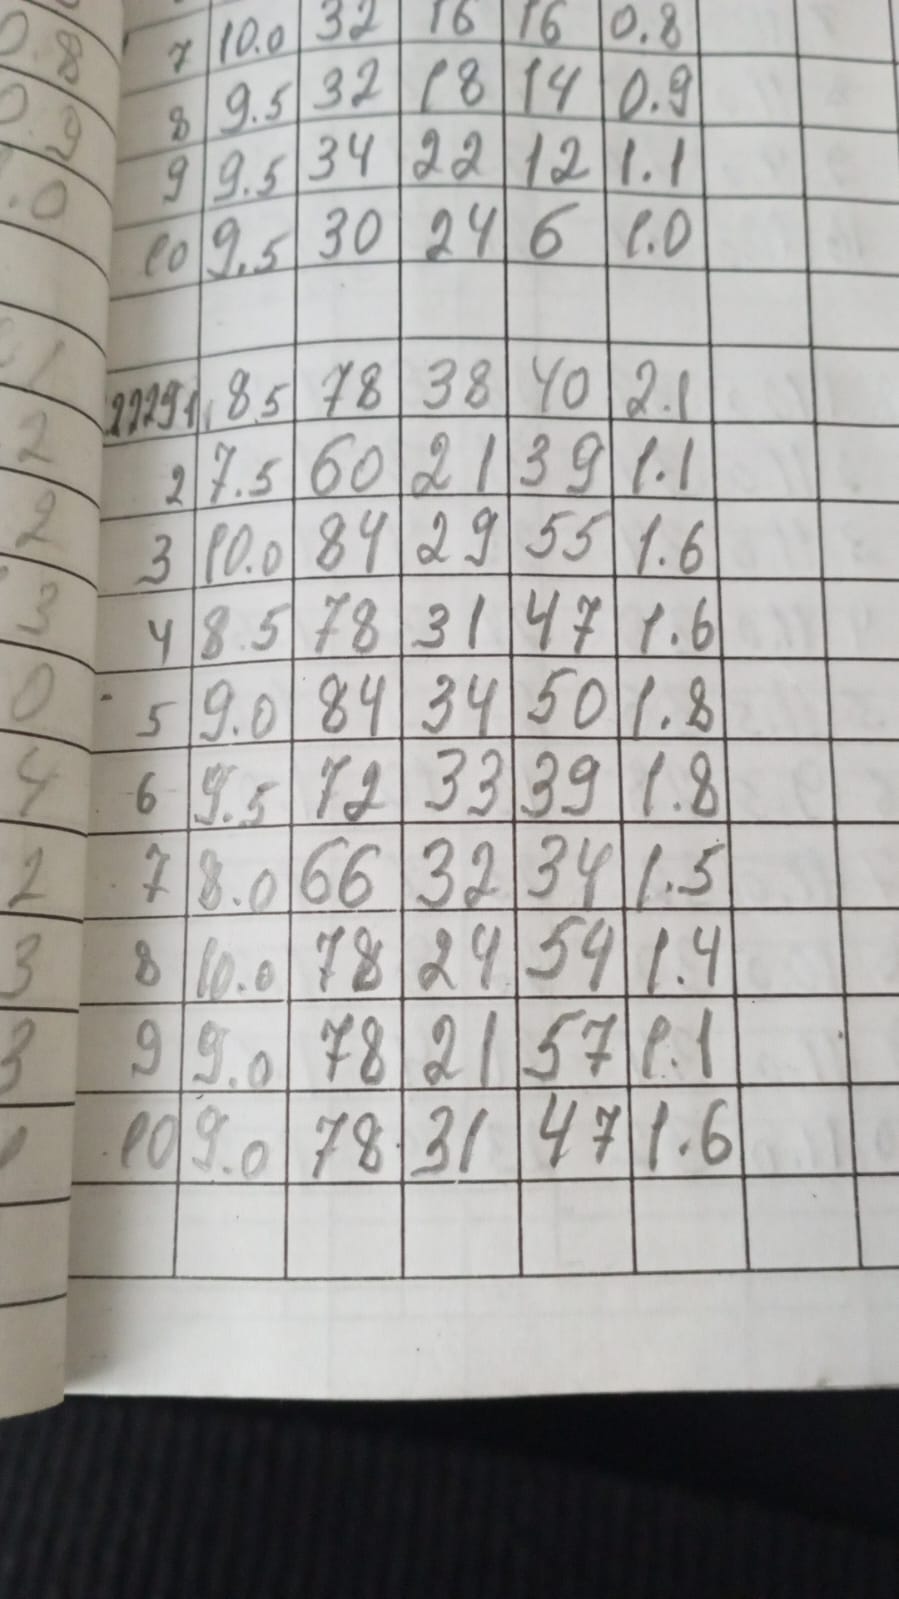 7 10.0 32 16 16 0.8
8 9.5 32 18 14 0.9
9 9.5 34 22 12 1.1
10 9.5 30 24 6 1.0
22291 8.5 78 38 40 2.1
2 7.5 60 21 39 1.1
3 10.0 84 29 55 1.6
4 8.5 78 31 47 1.6
5 9.0 84 34 50 1.8
6 9.5 72 33 39 1.8
7 8.0 66 32 34 1.5
8 10.0 78 24 54 1.4
9 9.0 78 21 57 1.1
10 9.0 78 31 47 1.6